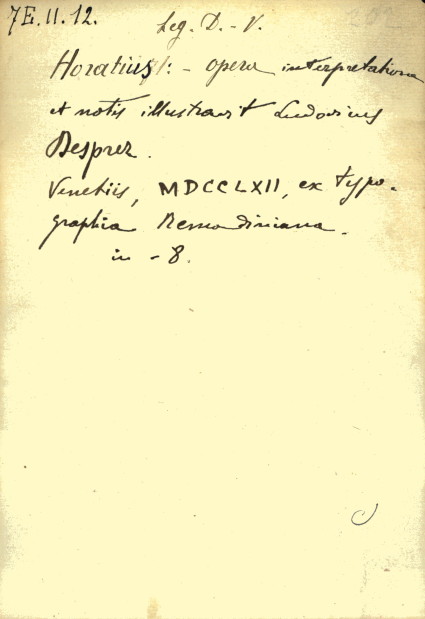 7E.II.12.
Leg. D.-V.
Horatius: - opera interpretatione
et notis illustravit Ludovicus
Desprez.
Venetiis, MDCCLXII, ex typo-
graphia Remondiniana.
in - 8.